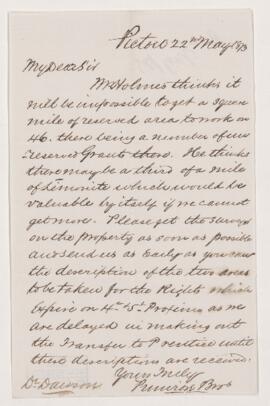 Pictou 22nd May 1873
My Dear Sir
Mr Holmes thinks it
will be impossible to get a square
mile of reserved area to work on
46. there being a number of un
reserved Grants there. He thinks
there may be a third of a mile
of Limonite which would be
valuable by itself if we cannot
get more. Please get the survey
on the property as soon as possible
and send us as Early as you can
the description of the two areas
to be taken for the Rights which
Expire on 4th 5th Proximo as we
are delayed in making out
the Transfer to Prentice until
these descriptions are received.
Yours Truly
Dr Dawson Primrose Bros